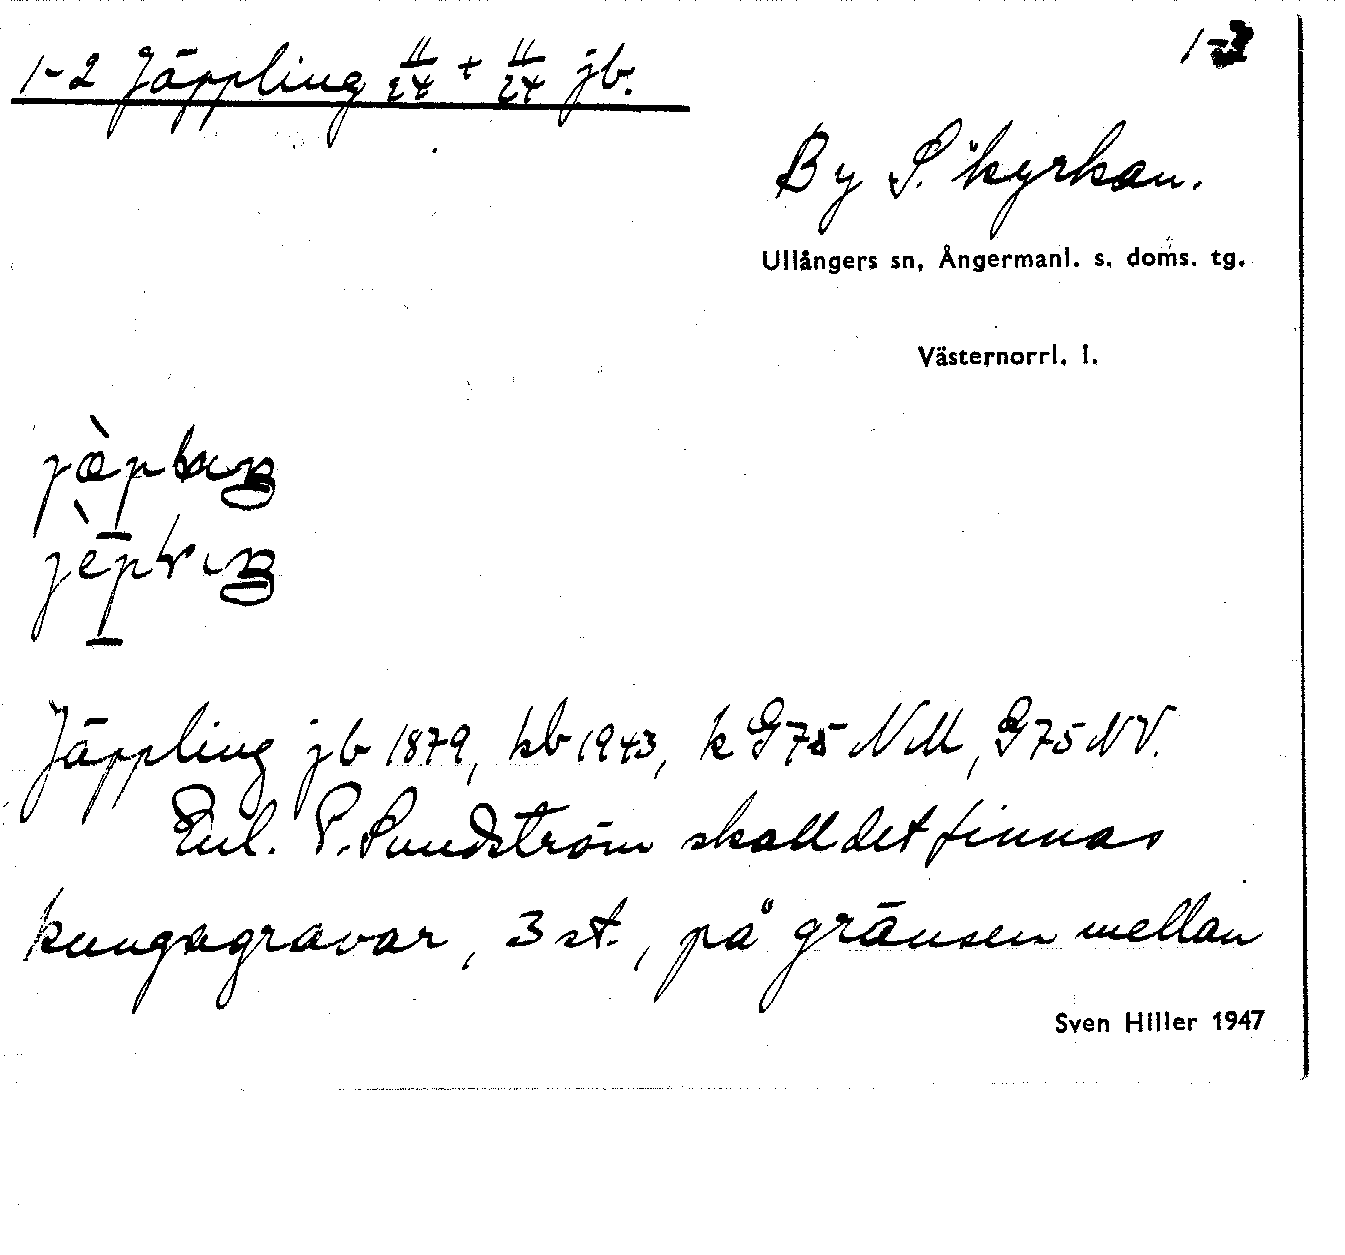 1-2 Jäppling 11/24 + 11/24 jb.
1-2
By S. kyrkan.
Ullångers sn, Ångermanl. s. doms. tg.
Västernorrl. l.
Jäppling jb 1879, kb 1943, k G75 NM, G75 NV.
Enl. P. Sundström skall det finnas
kungagravar, 3 st., på gränsen mellan
Sven Hiller 1947